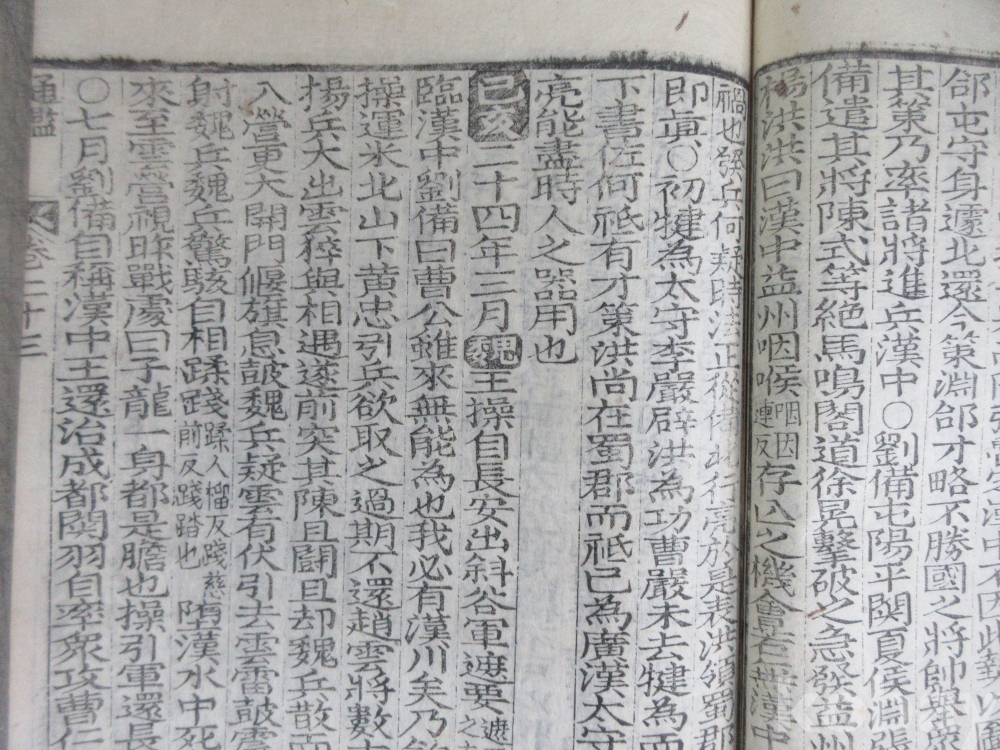 郃屯守身遽北還令策淵郃才略不勝國之將帥舉
其策乃率諸將進兵漢中○劉備屯陽平關夏侯淵張
備遣其將陳式等絶馬鳴閣道徐晃擊破之急發益州
楊洪洪曰漢中益州咽喉咽因連反存亡之機會若無漢中
禍也發兵何疑時法正從備北行亮於是表洪領蜀郡
即眞○初犍為太守李嚴辟洪為功曹嚴未去犍為而
下書佐何祗有才策洪尚在蜀郡而祗已為廣漢太守
亮能盡時人之器用也
己亥二十四年三月魏王操自長安出斜谷軍遮要遮
臨漢中劉備曰曹公雖來無能為也我必有漢川矣乃
操運米北山下黃忠引兵欲取之過期不還趙雲將數十
揚兵大出雲猝與相遇遂前突其陳且鬪且却魏兵散而
入營更大開門偃旗息皷魏兵疑雲有伏引去雲雷皷震
射魏兵魏兵驚駭自相蹂踐蹂人九踐慈前反踐踏也墮漢水中死
來至雲營視昨戰處曰子龍一身都是膽也操引軍還長
○七月劉備自稱漢中王還治成都關羽自率衆攻曹仁
通鑑 卷二十三